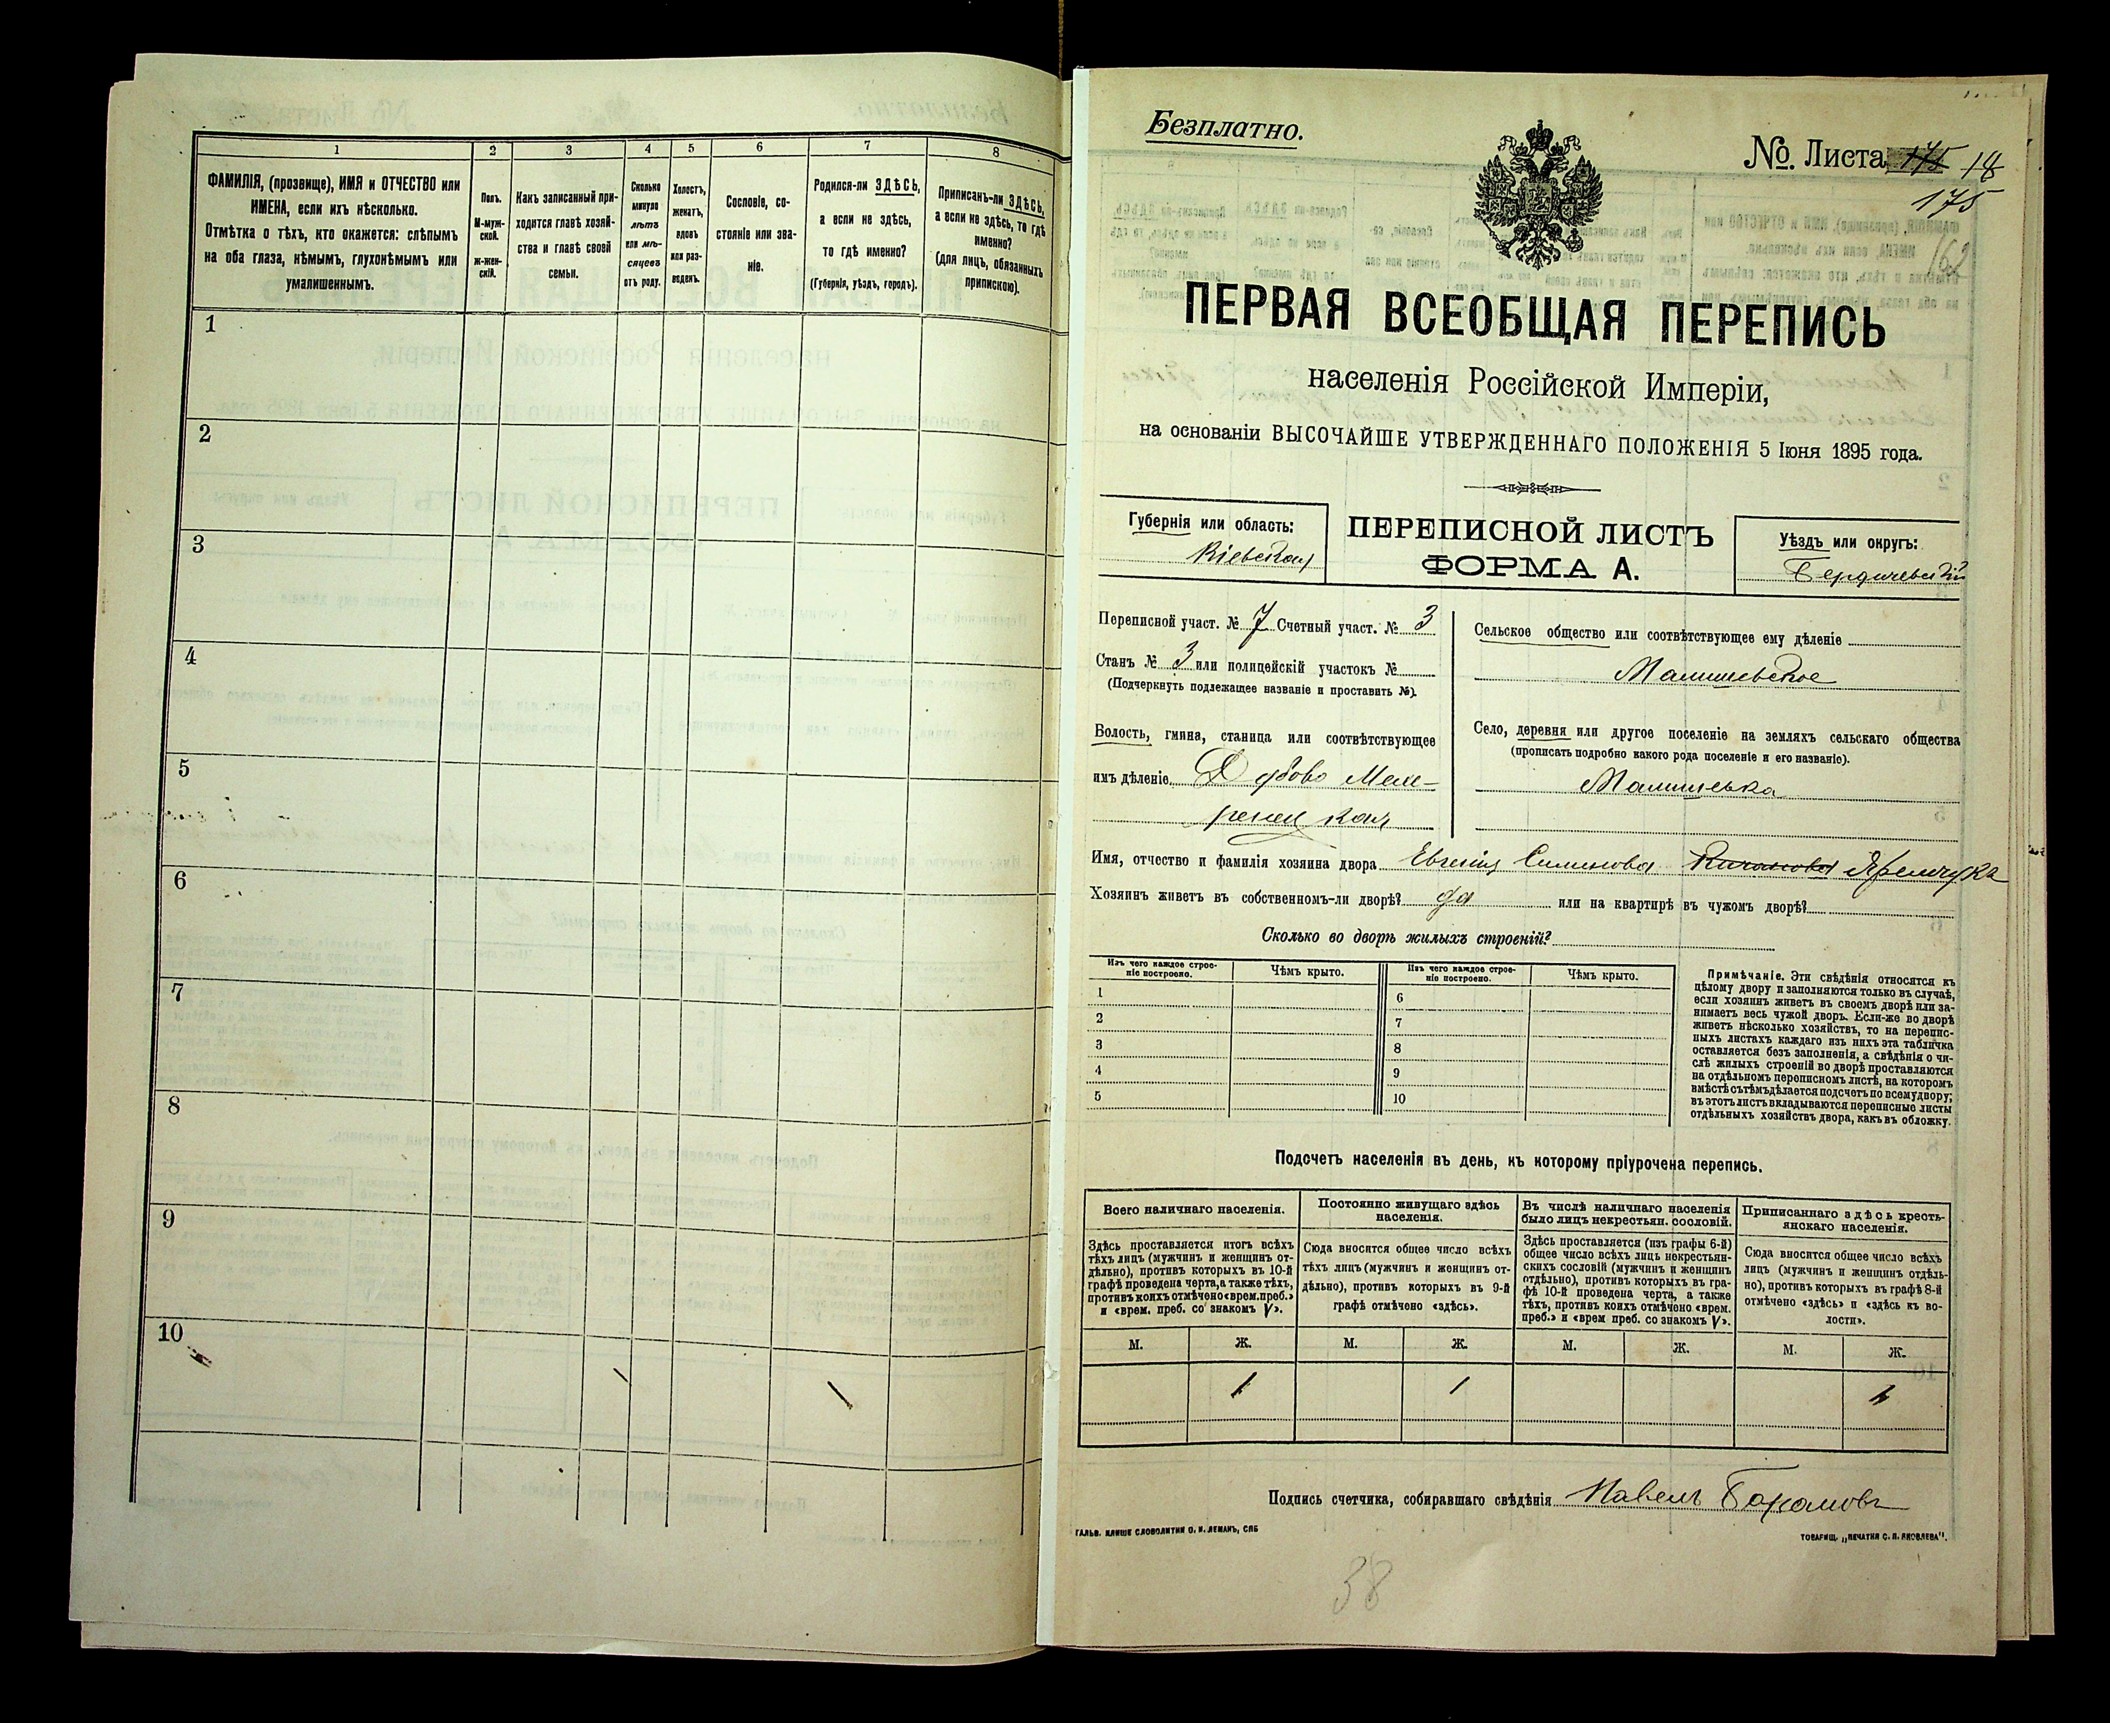 1 2 3 4 5 6 7 8
ФАМИЛІЯ, (прозвище), ИМЯ и ОТЧЕСТВО или
ИМЕНА, если ихъ нѣсколько.
Отмѣтка о тѣхъ, кто окажется: слѣпымъ
на оба глаза, нѣмымъ, глухонѣмымъ или
умалишеннымъ.
Полъ.
М-муж-
ской.
Ж-жен-
скій.
Какъ записанный при-
ходится главѣ хозяй-
ства и главѣ своей
семьи.
Сколько
минуло
лѣтъ
или мѣ-
сяцевъ
отъ роду.
Холостъ,
женатъ,
вдовъ
или раз-
веденъ.
Сословіе, со-
стояніе или зва-
ніе.
Родился-ли ЗДѢСЬ,
а если не здѣсь,
то гдѣ именно?
(Губернія, уѣздъ, городъ).
Приписанъ-ли ЗДѢСЬ,
а если не здѣсь, то гдѣ
именно?
(для лицъ, обязанныхъ
припискою).
1
2
3
4
5
6
7
8
9
10
Безплатно.
№. Листа 175 18
175
162
ПЕРВАЯ ВСЕОБЩАЯ ПЕРЕПИСЬ
населенія Россійской Имперіи,
на основаніи ВЫСОЧАЙШЕ УТВЕРЖДЕННАГО ПОЛОЖЕНІЯ 5 Іюня 1895 года.
Губернія или область:
Кіевская
ПЕРЕПИСНОЙ ЛИСТЪ
ФОРМА А.
Уѣздъ или округъ:
Бердичевскій
Переписной участ. № 7 Счетный участ. № 3
Станъ № 3 или полицейскій участокъ №
(Подчеркнуть подлежащее названіе и проставить №).
Волость, гмина, станица или соотвѣтствующее
имъ дѣленіе
Сельское общество или соотвѣтствующее ему дѣленіе
Малишевское
Село, деревня или другое поселеніе на земляхъ сельскаго общества
(прописать подробно какого рода поселеніе и его названіе).
Малишевка
Имя, отчество и фамилія хозяина двора Евгенія Симонова
Хозяинъ живетъ въ собственномъ-ли дворѣ? да или на квартирѣ въ чужомъ дворѣ?
Сколько во дворѣ жилыхъ строеній?
Изъ чего каждое строе-
ніе построено.
Чѣмъ крыто.
Изъ чего каждое строе-
ніе построено.
Чѣмъ крыто.
1 6
2 7
3 8
4 9
5 10
Примѣчаніе. Эти свѣдѣнія относятся къ
цѣлому двору и заполняются только въ случаѣ,
если хозяинъ живетъ въ своемъ дворѣ или за-
нимаетъ весь чужой дворъ. Если-же во дворѣ
живетъ нѣсколько хозяйствъ, то на перепис-
ныхъ листахъ каждаго изъ нихъ эта табличка
оставляется безъ заполненія, а свѣдѣнія о чи-
слѣ жилыхъ строеній во дворѣ проставляются
на отдѣльномъ переписномъ листѣ, на которомъ
вмѣстѣ съ тѣмъ дѣлается подсчетъ по всему двору;
въ этотъ листъ вкладываются переписные листы
отдѣльныхъ хозяйствъ двора, какъ въ обложку.
Подсчетъ населенія въ день, къ которому пріурочена перепись.
Всего наличнаго населенія.
Здѣсь проставляется итогъ всѣхъ
тѣхъ лицъ (мужчинъ и женщинъ от-
дѣльно), противъ которыхъ въ 10-й
графѣ проведена черта, а также тѣхъ,
противъ коихъ отмѣчено «врем. преб.»
и «врем. преб. со знакомъ V».
Постоянно живущаго здѣсь
населенія.
Сюда вносится общее число всѣхъ
тѣхъ лицъ (мужчинъ и женщинъ от-
дѣльно), противъ которыхъ въ 9-й
графѣ отмѣчено «здѣсь».
Въ числѣ наличнаго населенія
было лицъ некрестьян. сословій.
Здѣсь проставляется (изъ графы 6-й)
общее число всѣхъ лицъ некрестьян-
скихъ сословій (мужчинъ и женщинъ
отдѣльно), противъ которыхъ въ гра-
фѣ 10-й проведена черта, а также
тѣхъ, противъ коихъ отмѣчено «врем.
преб.» и «врем преб. со знакомъ V».
Приписаннаго здѣсь кресть-
янскаго населенія.
Сюда вносится общее число всѣхъ
лицъ (мужчинъ и женщинъ отдѣль-
но), противъ которыхъ въ графѣ 8-й
отмѣчено «здѣсь» и «здѣсь къ во-
лости».
М. Ж. М. Ж. М. Ж. М. Ж.
1 1 1
Подпись счетчика, собиравшаго свѣдѣнія Павелъ
ГАЛЬВ. КЛИШЕ СЛОВОЛИТНИ О. И. ЛЕМАНЪ, СПБ
ТОВАРИЩ. „ПЕЧАТНЯ С. П. ЯКОВЛЕВА".
38